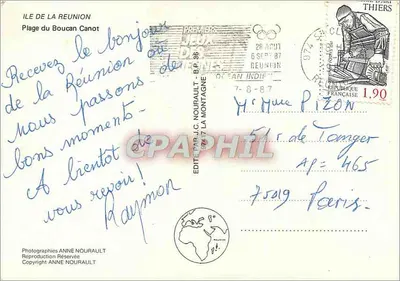 ILE DE LA REUNION
Plage du Boucan Canot
Recevez le bonjour
de la Réunion où
nous passons de
bons moments.
A bientôt de
vous revoir!
Raymon
Photographies ANNE NOURAULT
Reproduction Interdite
Copyright ANNE NOURAULT
EDITE PAR J.C. NOURAULT - B.P. 98
LA MONTAGNE
28 AOUT
6 SEP 87
REUNION
OCEAN INDIEN
7-8-87
974
THIERS
REPUBLIQUE
FRANÇAISE
1,90
CPAPHIL
Mr Mme PIZON
51 r de Tanger
AP = 465
75019 Paris